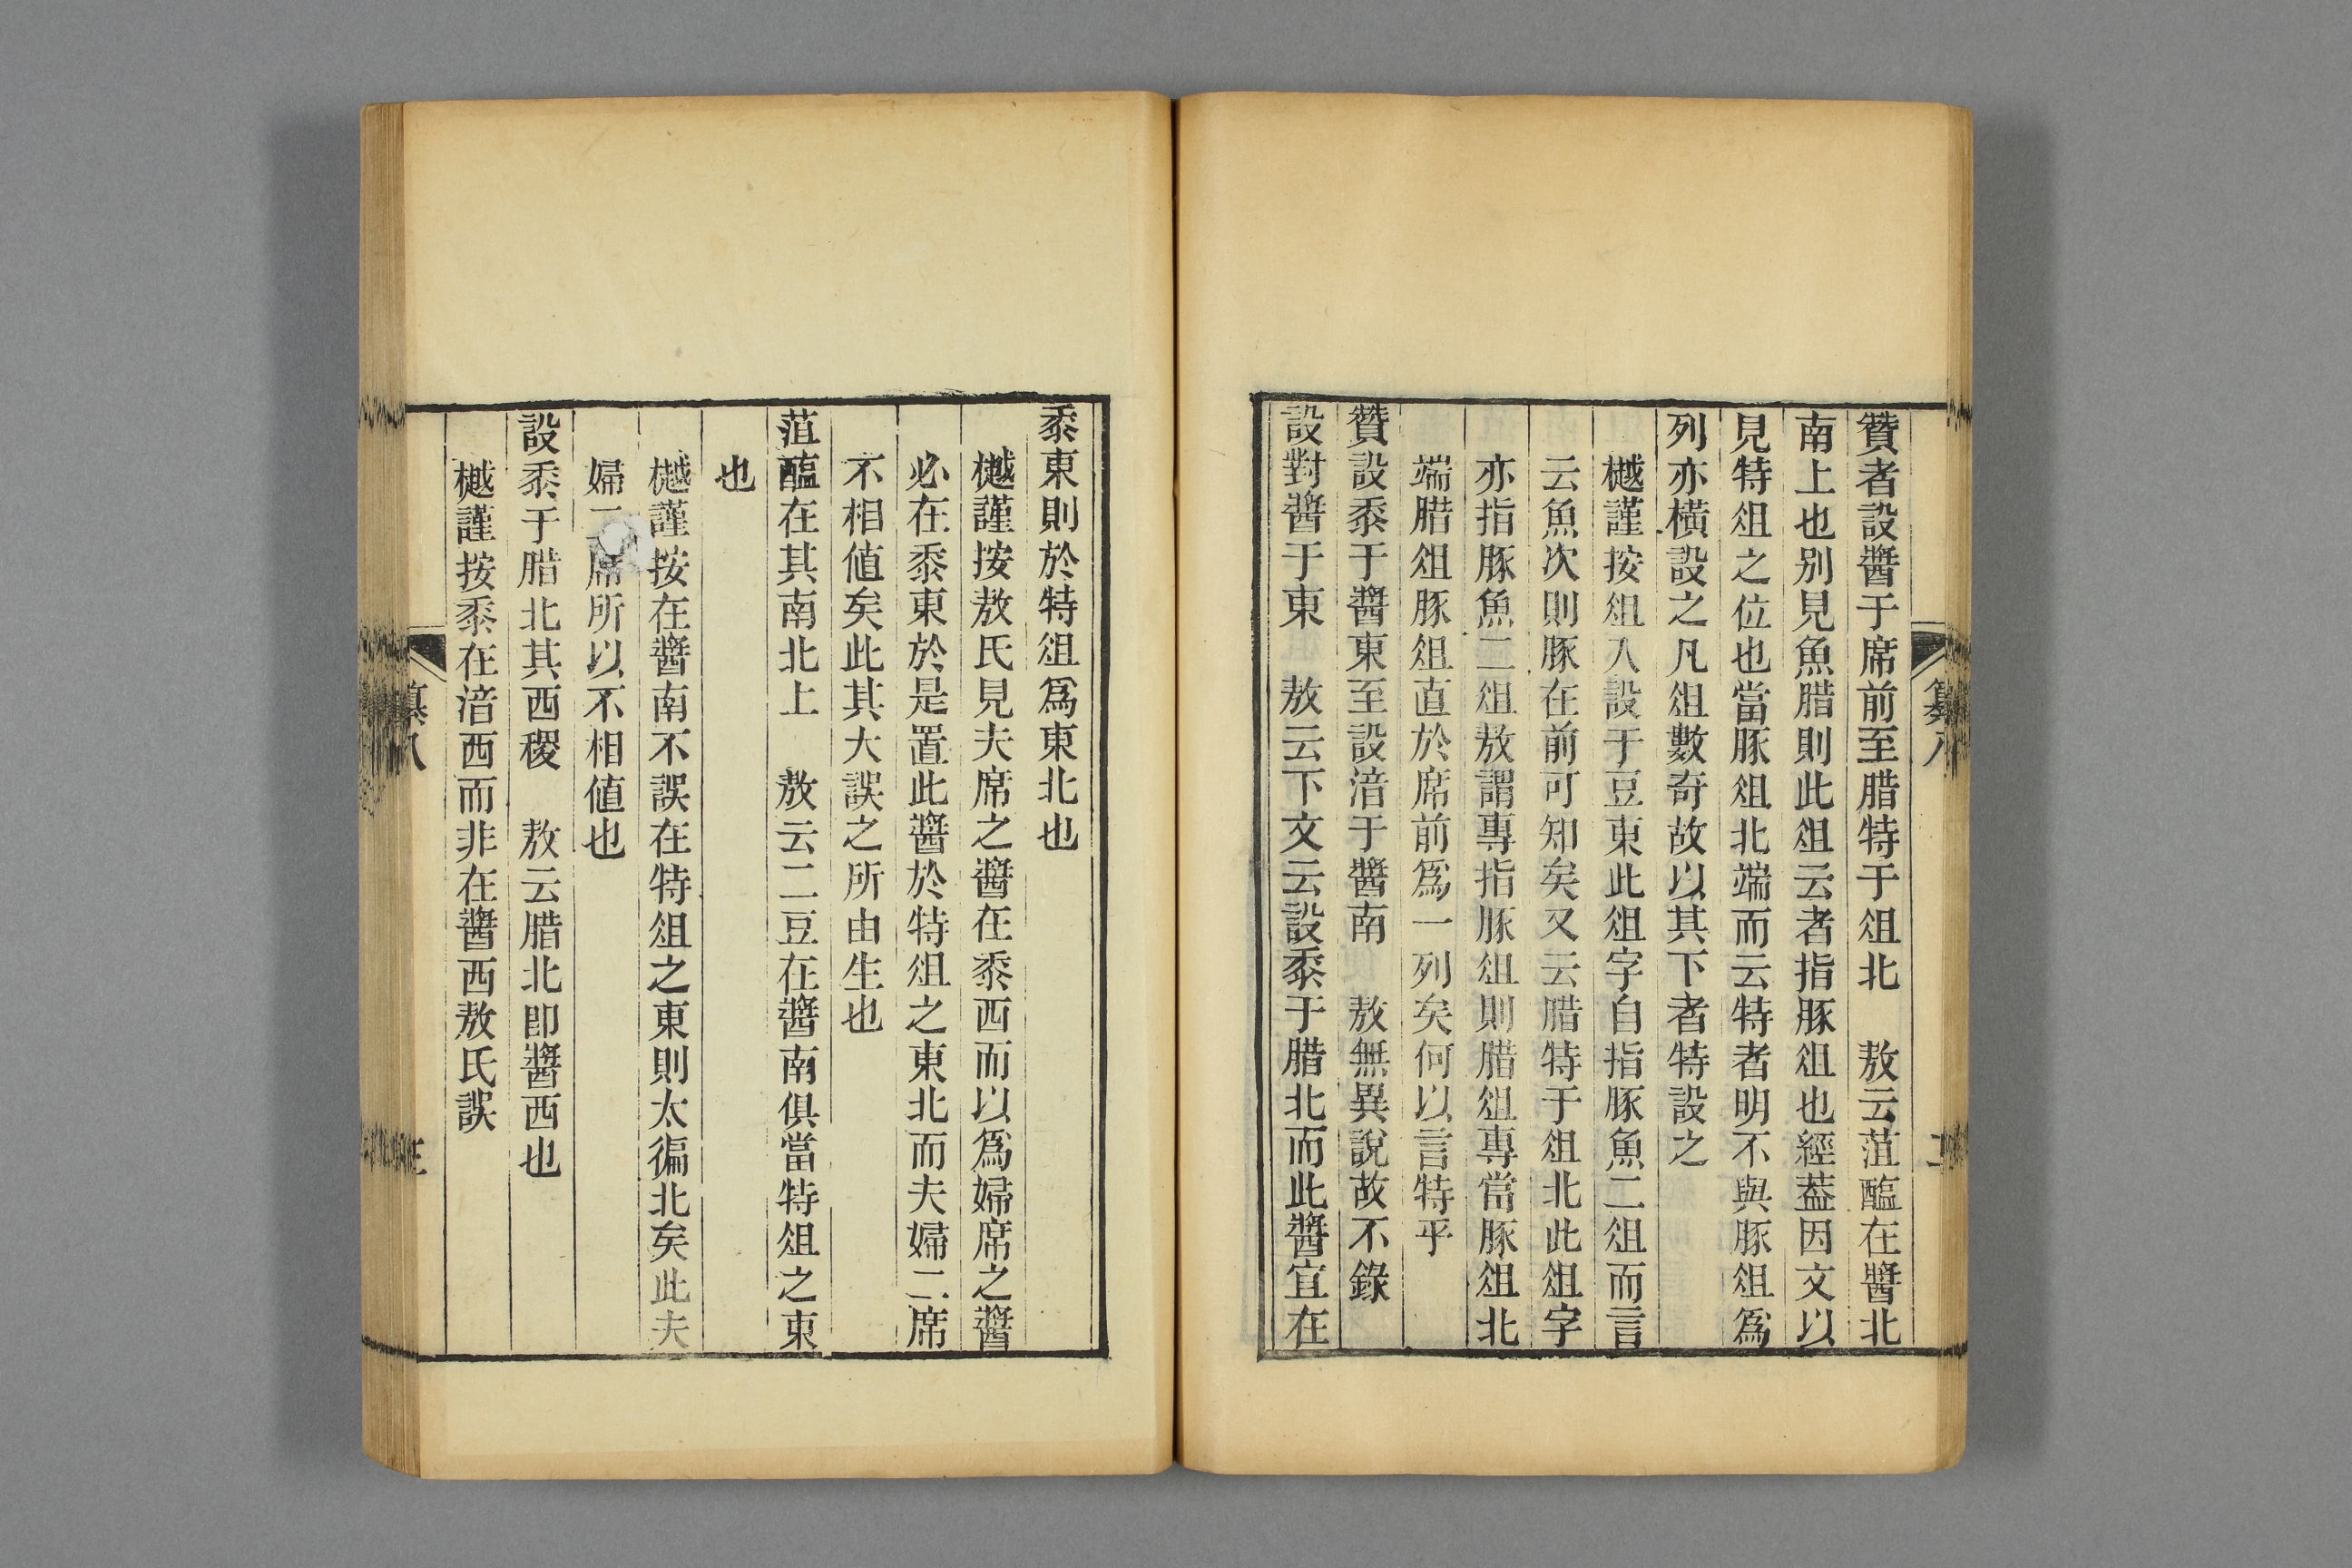 贊者設醬于席前至腊特于俎北　敖云菹醢在醬北
南上也別見魚腊則此俎云者指豚俎也經葢因文以
見特俎之位也當豚俎北端而云特者明不與豚俎爲
列亦橫設之凡俎數奇故以其下者特設之
樾謹按俎入設于豆東此俎字自指豚魚二俎而言
云魚次則豚在前可知矣又云腊特于俎北此俎字
亦指豚魚二俎敖謂專指豚俎則腊俎專當豚俎北
端腊俎豚俎直於席前爲一列矣何以言特乎
贊設黍于醬東至設湆于醬南　敖無異說故不錄
設對醬于東　敖云下文云設黍于腊北而此醬宜在
黍東則於特俎爲東北也
樾謹按敖氏見夫席之醬在黍西而以爲婦席之醬
必在黍東於是置此醬於特俎之東北而夫婦二席
不相值矣此其大誤之所由生也
菹醢在其南北上　敖云二豆在醬南俱當特俎之東
也
樾謹按在醬南不誤在特俎之東則太徧北矣此夫
婦二席所以不相值也
設黍于腊北其西稷　敖云腊北卽醬西也
樾謹按黍在湆西而非在醬西敖氏誤
纂八